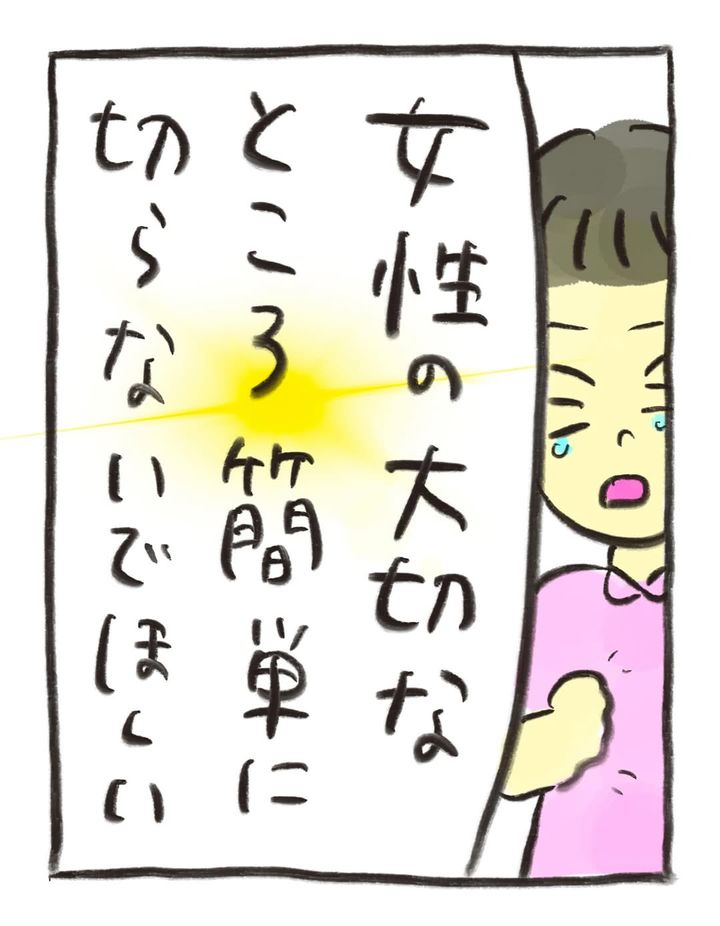 女性の大切な
ところ簡単に
切らないでほしい